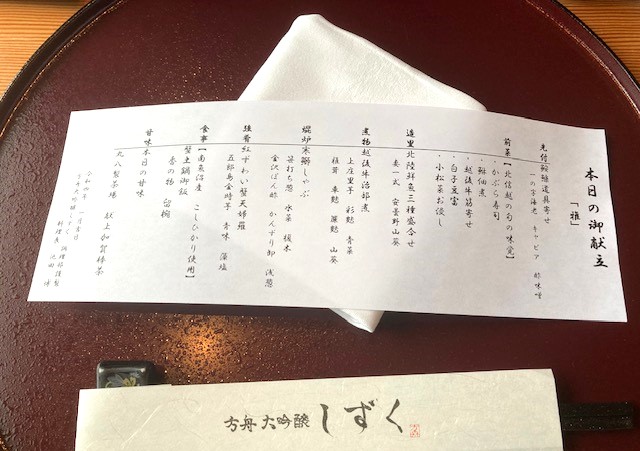 本日の御献立
「雅」
先付 鮟鱇道具寄せ
一の字海老 キャビア 酢味噌
前菜【北信越の旬の味覚】
・かぶら寿司
・鰤佃煮
・越後牛筋寄せ
・白子豆富
・小松菜お浸し
造里 北陸鮮魚三種盛合せ
妻一式 安曇野山葵
煮物 越後牛治部煮
上庄里芋 彩麩 青菜
椎茸 車麩 簾麩 山葵
焜炉 寒鰤しゃぶ
笹打ち葱 水菜 榎木
金沢ぽん酢 かんずり卸 浅葱
強肴 紅ずわい蟹天婦羅
五郎島金時芋 青味 藻塩
食事【南魚沼産 こしひかり使用】
蟹土鍋御飯
香の物 留椀
甘味 本日の甘味
丸八製茶場 献上加賀棒茶
料理長
方舟 大吟醸 しずく